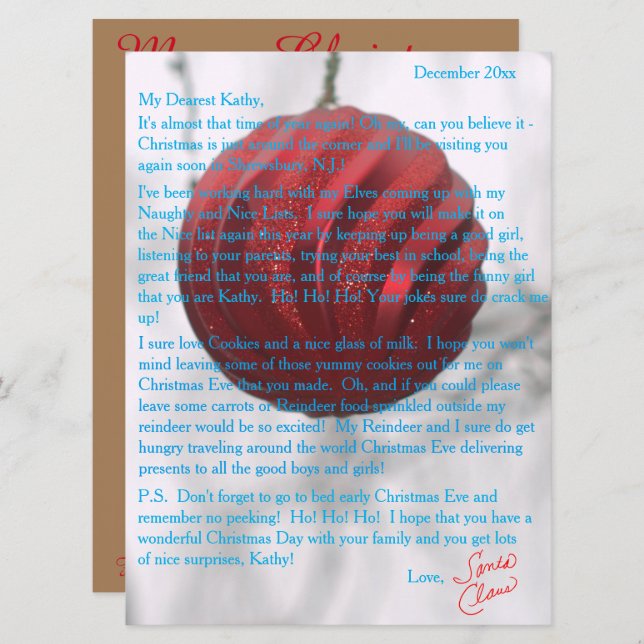 December 20xx
My Dearest Kathy,
It's almost that time of year again! Oh my, can you believe it -
Christmas is just around the corner and I'll be visiting you
again soon in Shrewsbury, N.J.!
I've been working hard with my Elves coming up with my
Naughty and Nice Lists. I sure hope you will make it on
the Nice list again this year by keeping up being a good girl,
listening to your parents, trying your best in school, being the
great friend that you are, and of course by being the funny girl
that you are Kathy. Ho! Ho! Ho! Your jokes sure do crack me
up!
I sure love Cookies and a nice glass of milk: I hope you won't
mind leaving some of those yummy cookies out for me on
Christmas Eve that you made. Oh, and if you could please
leave some carrots or Reindeer food sprinkled outside my
reindeer would be so excited! My Reindeer and I sure do get
hungry traveling around the world Christmas Eve delivering
presents to all the good boys and girls!
P.S. Don't forget to go to bed early Christmas Eve and
remember no peeking! Ho! Ho! Ho! I hope that you have a
wonderful Christmas Day with your family and you get lots
of nice surprises, Kathy!
Love,
Santa
Claus